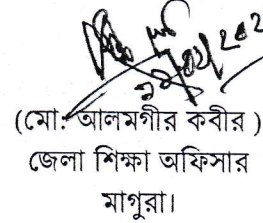 (মো: আলমগীর কবীর )
জেলা শিক্ষা অফিসার
মাগুরা।